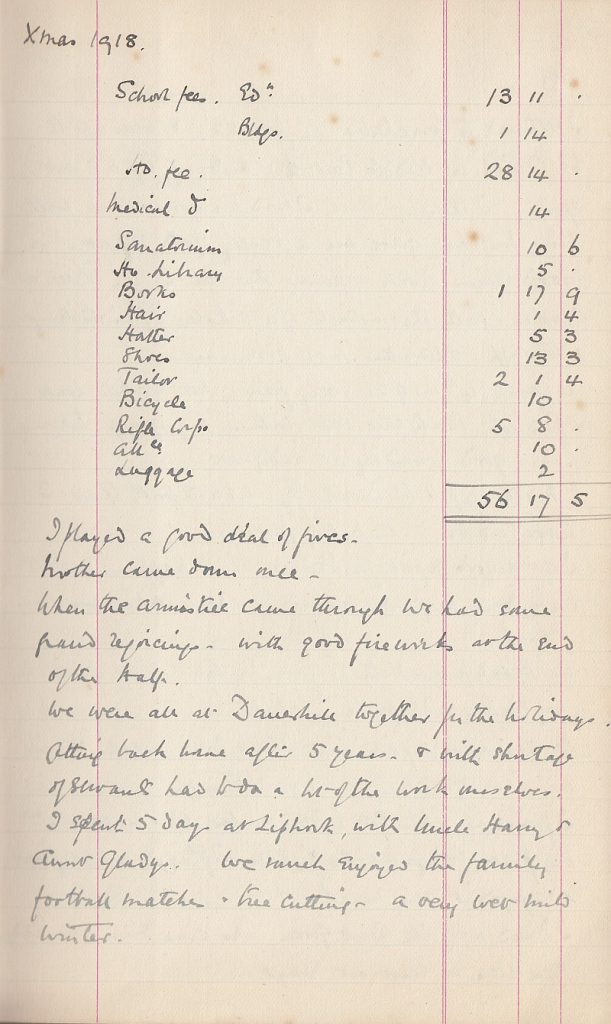 Xmas 1918.
School fees. Edn 13 11 .
Bldgs. 1 14
Ho. fee. 28 14 .
Medical Do 14
Sanatorium 10 6
Ho. Library 5 .
Books 1 17 9
Hair 1 4
Hatter 5 3
Shoes 13 3
Tailor 2 1 4
Bicycle 10
Rifle Corps 5 8 .
Allce 10 .
Luggage 2
56 17 5
I played a good deal of fives -
Mother came down once -
When the armistice came through we had some
grand rejoicings - with good fireworks at the end
of the Half.
We were all at Danehill together for the holidays.
Getting back home after 5 years - & with shortage
of servants had to do a lot of the work ourselves.
I spent 5 days at Liphook, with Uncle Harry &
Aunt Gladys. We much enjoyed the family
football matches & tree cutting - a very wet mild
winter.